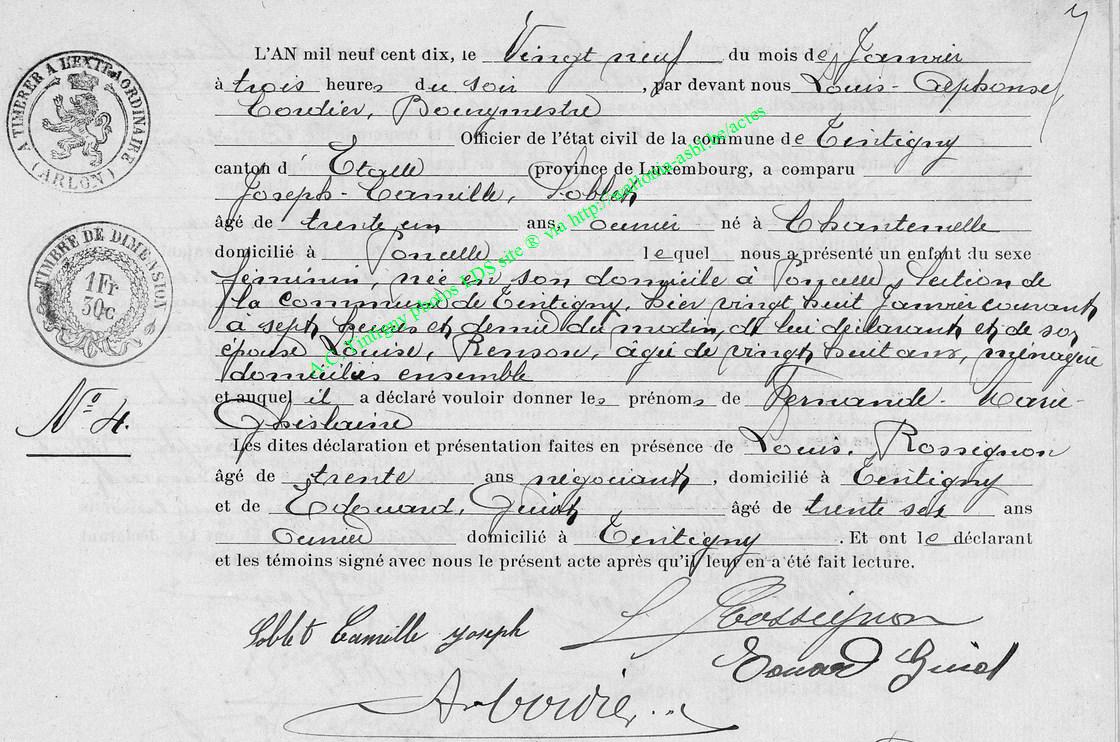 L'AN mil neuf cent dix, le Vingt neuf du mois de Janvier
à trois heures du soir , par devant nous Louis-Alphonse
Cordier, Bourgmestre
Officier de l'état civil de la commune de Tintigny
canton d'Etalle province de Luxembourg, a comparu
Joseph-Camille, Soblet
âgé de trente un ans ouvrier né à Chantemelle
domicilié à Poncelle lequel nous a présenté un enfant du sexe
féminin, née en son domicile à Poncelle, Section de
la commune de Tintigny, hier vingt huit Janvier courant
à sept heures et demie du matin, de lui déclarant et de son
épouse Louise, Renson, âgée de vingt huit ans, ménagère
domiciliés ensemble
et auquel il a déclaré vouloir donner les prénoms de Fernande-Marie-
Ghislaine
Les dites déclaration et présentation faites en présence de Louis, Rossignon
âgé de trente ans négociant, domicilié à Tintigny
et de Edouard, Guiot âgé de trente six ans
Ouvrier domicilié à Tintigny . Et ont le déclarant
et les témoins signé avec nous le présent acte après qu'il leur en a été fait lecture.
Soblet Camille Joseph
L Rossignon
Edouard Guiot
A. Cordier
A TIMBRER A L'EXTRAORDINAIRE
(ARLON)
TIMBRE DE DIMENSION
1Fr
30c
N° 4.
A.C. Tintigny photos EDS site ® via http://gallodia-asbl.be/actes